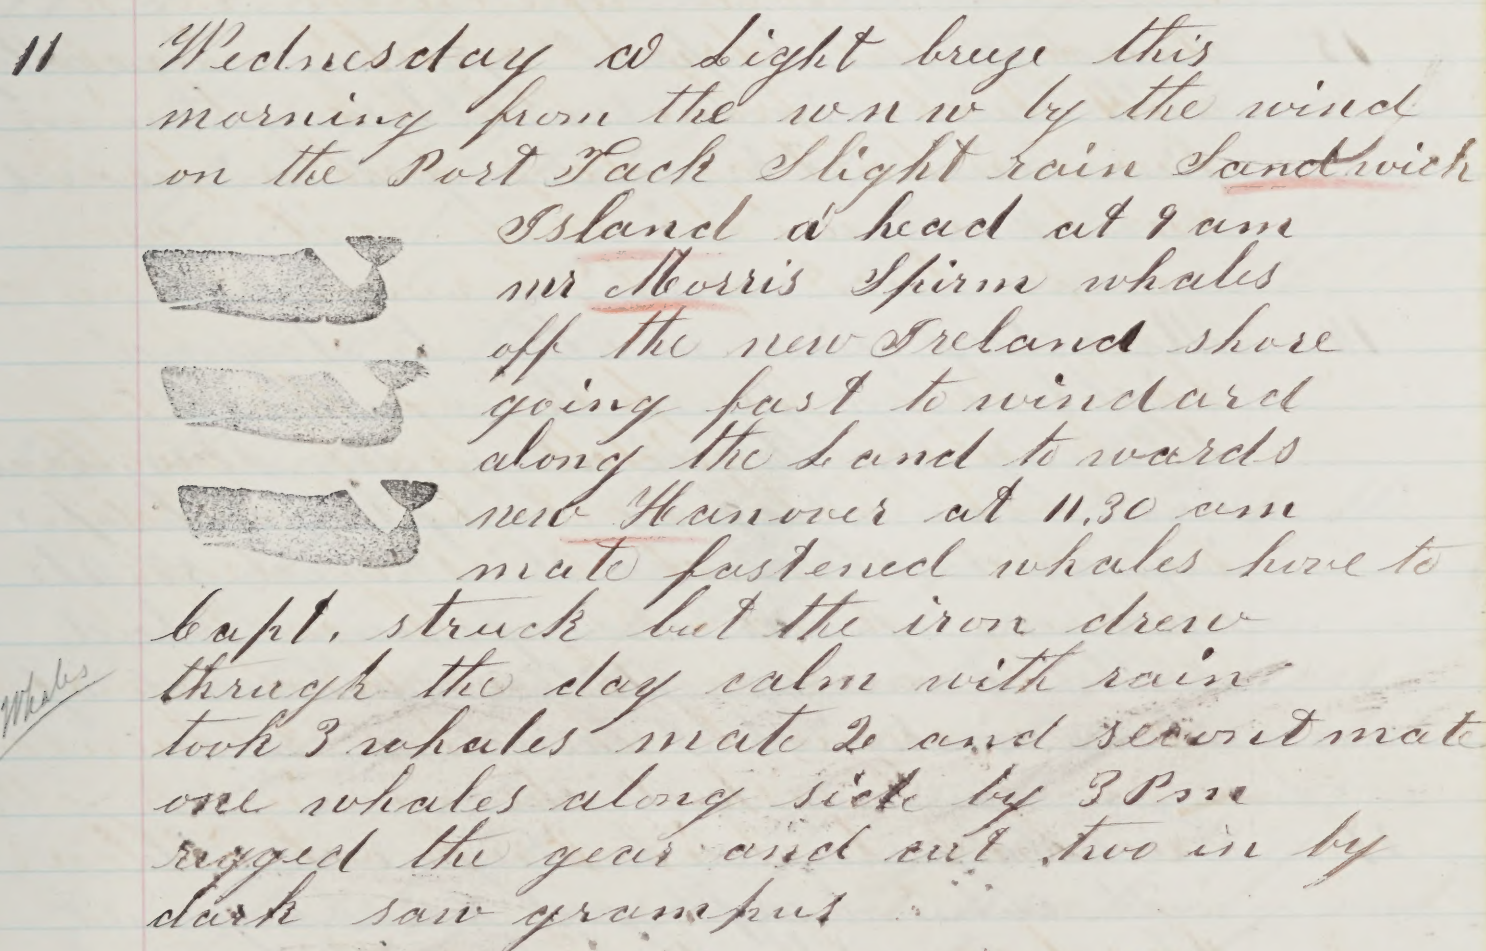 11 Wednesday a Light breeze this
morning from the w n w by the wind
on the Port Tack Slight rain Sandwich
Island a head at 9 am
mr Morris Spirm whales
off the new Ireland shore
going fast to windard
along the Land to wards
new Hanover at 11.30 am
mate fastened whales hove to
Capt. struck but the iron drew
thrugh the day calm with rain
Whales
took 3 whales mate 2 and secont mate
one whales along side by 3 Pm
rigged the gear and cut two in by
dark saw grampus